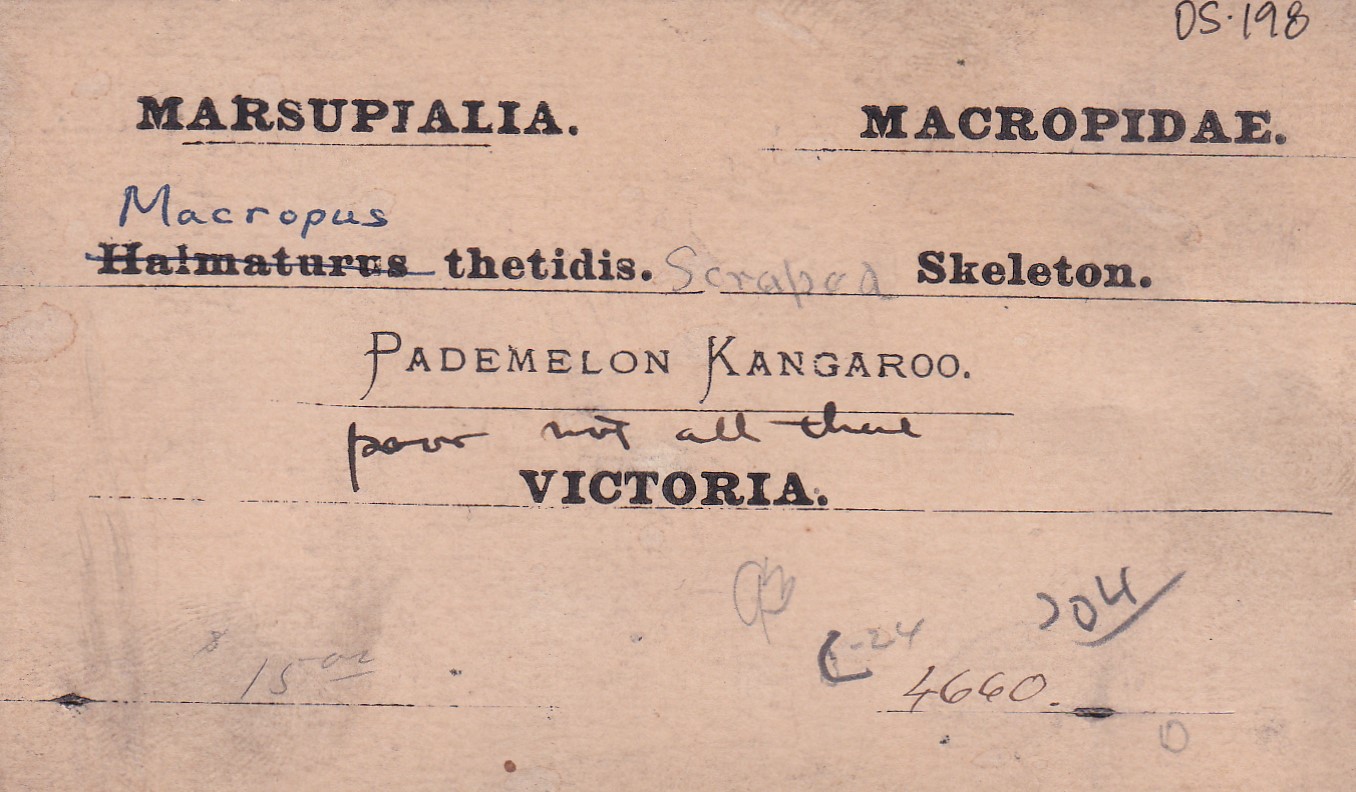 DS·198
MARSUPIALIA. MACROPIDAE.
Macropus
Halmaturus thetidis. Scraped Skeleton.
PADEMELON KANGAROO.
poor not all there
VICTORIA.
204
C-24
$15 00
4660.